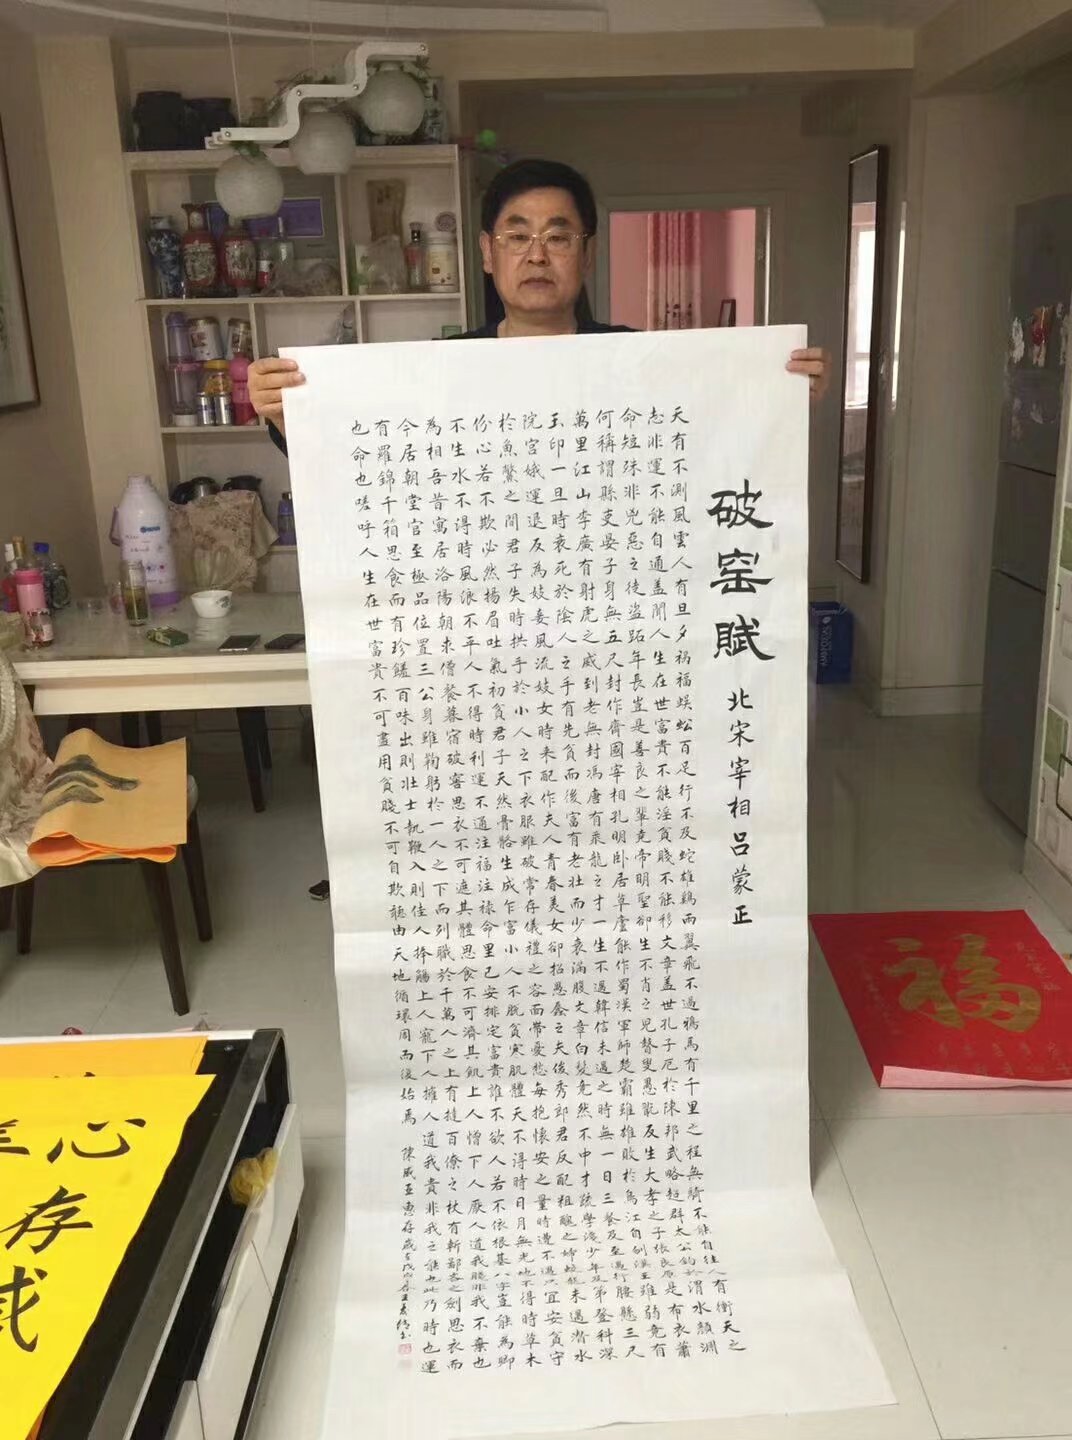 破窑賦 北宋宰相吕蒙正
天有不測風雲人有旦夕禍福蜈蚣百足行不及蛇雄鷄兩翼飛不過鴉馬有千里之程無騎不能自往人有衝天之
志非運不能自通盖聞人生在世富貴不能淫貧賤不能移文章盖世孔子厄於陳邦武略超群太公釣於渭水顏渊
命短殊非兇惡之徒盜跖年長豈是善良之輩尭帝明聖卻生不肖之兒瞽叟愚頑反生大孝之子張良原是布衣蕭
何稱謂縣吏晏子身無五尺封作齊國宰相孔明卧居草廬能作蜀漢軍師楚霸雖雄敗於烏江自刎漢王雖弱竟有
萬里江山李廣有射虎之威到老無封馮唐有乘龍之才一生不遇韓信未遇之時無一日三餐及至遇行腰懸三尺
玉印一旦時衰死於陰人之手有先貧而後富有老壯而少衰滿腹文章白髮竟然不中才疏學淺少年及第登科深
院宮娥運退反為妓妾風流妓女時來配作夫人青春美女卻招愚蠢之夫俊秀郎君反配粗醜之婦蛟龍未遇潛水
於魚鱉之間君子失時拱手於小人之下衣服雖破常存儀禮之容面帶憂愁每抱懷安之量時遭不遇只宜安貧守
份心若不欺必然揚眉吐氣初貧君子天然骨骼生成乍富小人不脫貧寒肌體天不得時日月無光地不得時草木
不生水不得時風浪不平人不得時利運不通注福注祿命里已安排定富貴誰不欲人若不依根基八字豈能為卿
為相吾昔寓居洛陽朝求僧餐暮宿破窖思衣不可遮其體思食不可濟其飢上人憎下人厭人道我賤非我不棄也
今居朝堂官至極品位置三公身雖鞠躬於一人之下而列職於千萬人之上有撻百僚之杖有斬鄙吝之劍思衣而
有羅錦千箱思食而有珍饈百味出則壯士執鞭入則佳人捧觴上人寵下人擁人道我貴非我之能也此乃時也運
也命也嗟呼人生在世富貴不可盡用貧賤不可自欺聽由天地循環周而復始焉 陳威亞惠存
福
心存